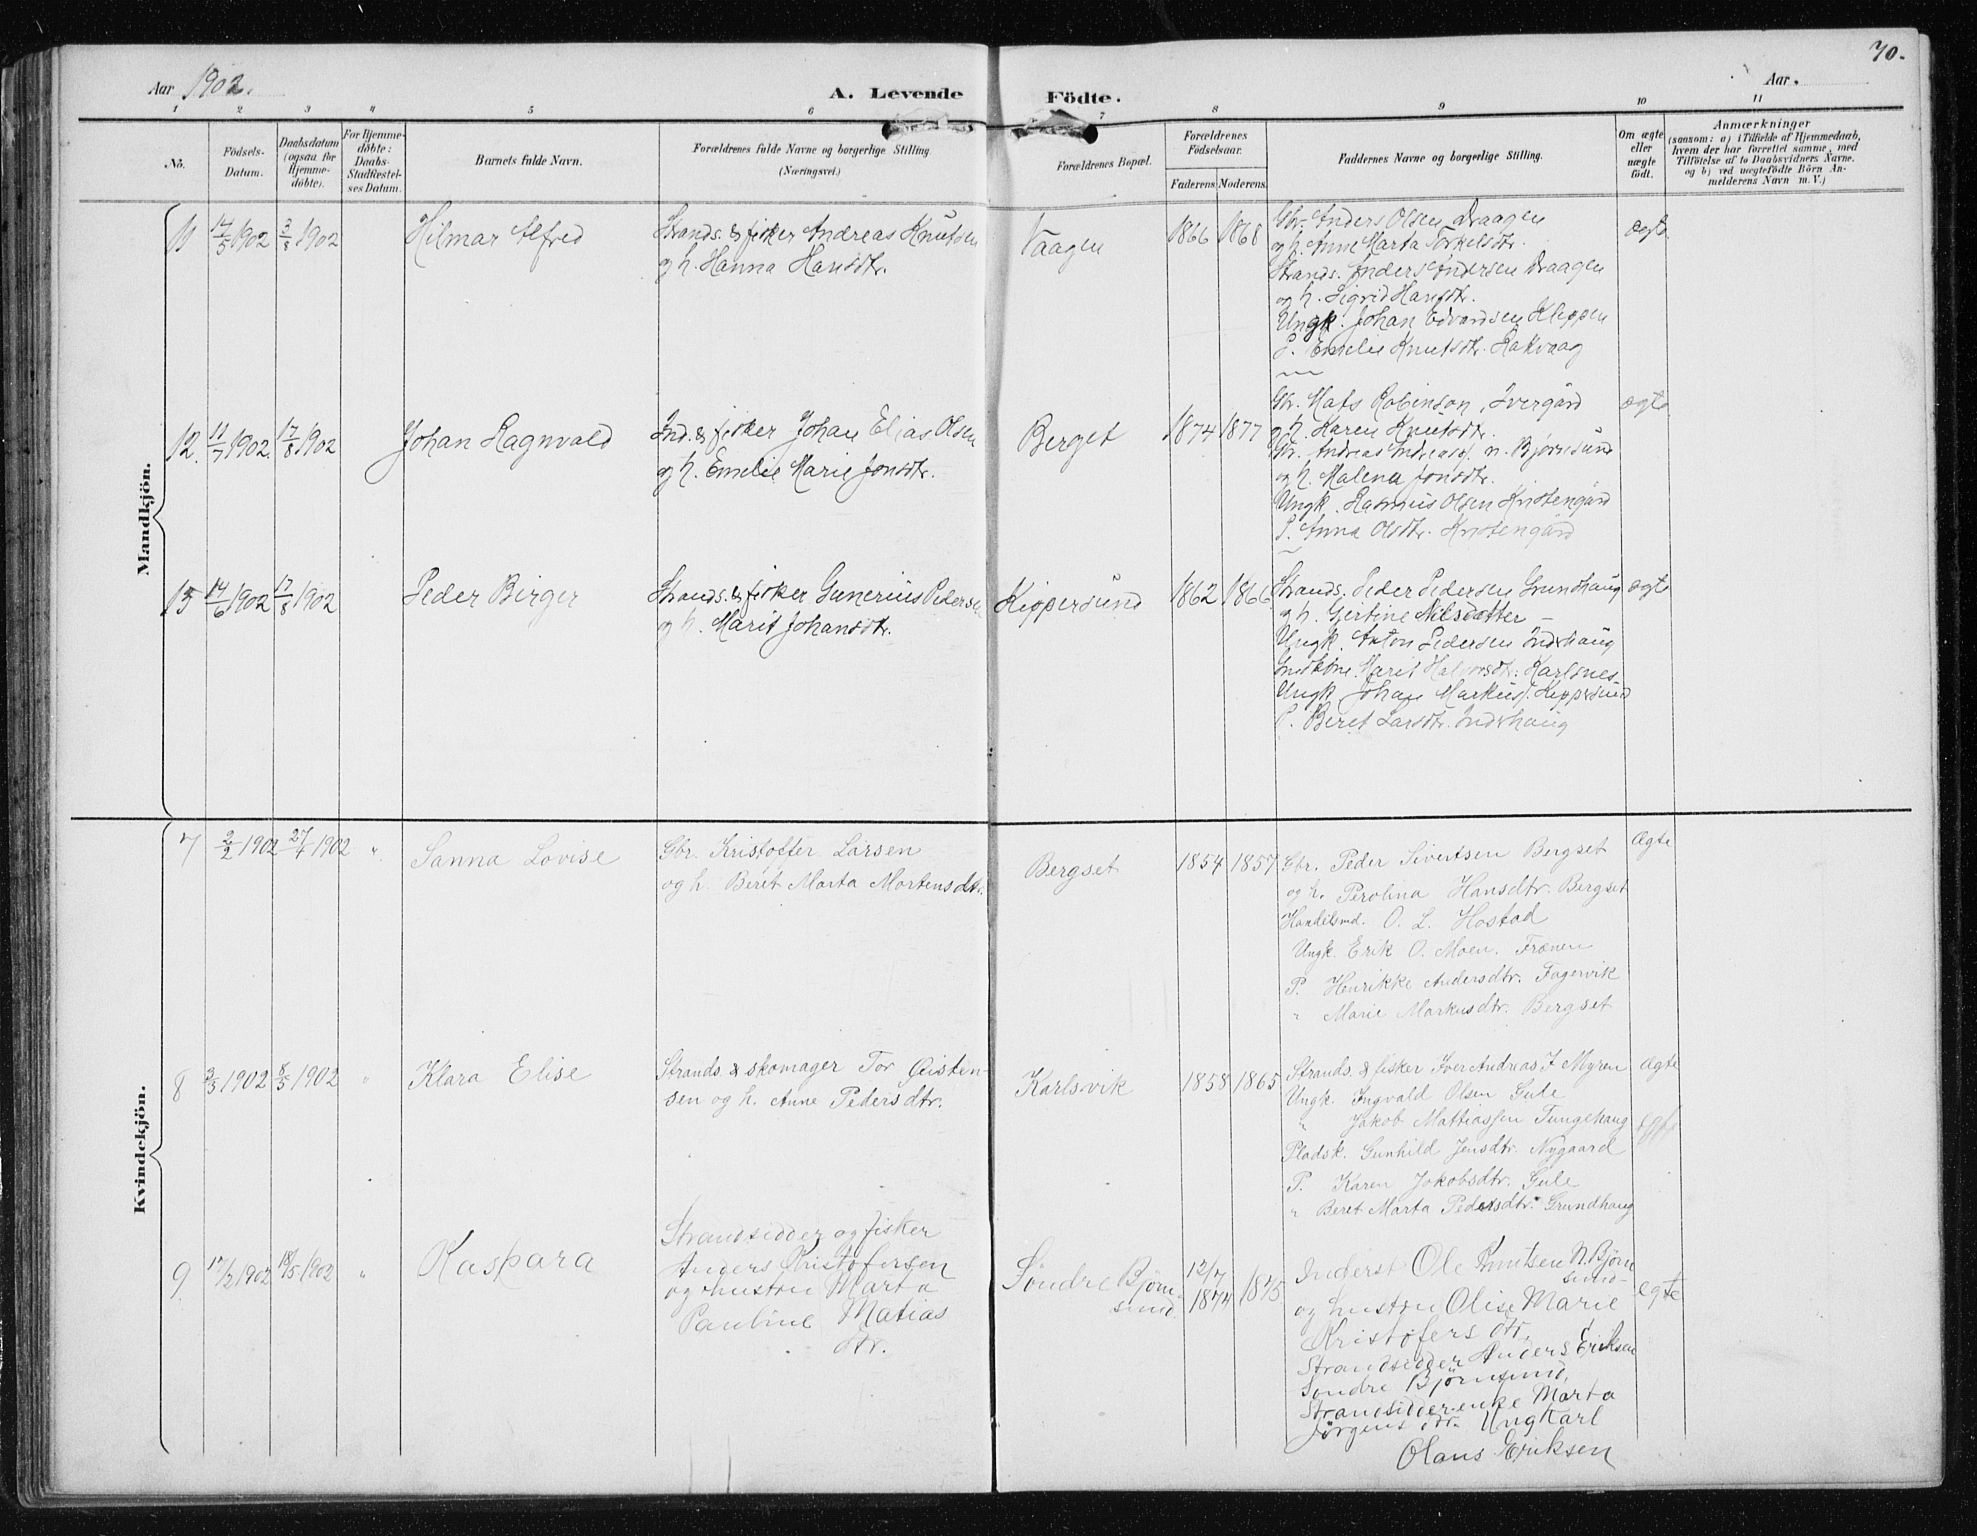 70.
Aar 1902.
A. Levende Födte.
Aar
1 2 3 4 5 6 7 8 9 10 11
No.
Födsels-Datum.
Daabsdatum (ogsaa for Hjemme-döbte).
For Hjemme-döbte: Daabs-Stadfæstel-ses Datum.
Barnets fulde Navn.
Forældrenes fulde Navne og borgerlige Stilling (Næringsvei.)
Forældrenes Bopæl.
Forældrenes Födselsaar.
Faderens. Moderens.
Faddernes Navne og borgerlige Stilling.
Om ægte eller uægte födt.
Anmærkninger
(saasom: a) i Tilfælde af Hjemmedaab,
hvem der har forrettet samme, med
Tilföielse af to Daabsvidners Navne.
og b) ved uægtefödte Börn An-
melderens Navn m. V.)
Mandkjön.
11 14/5 1902 3/8 1902
Hilmar Alfred
Strands. & fisker Andreas Knutsen
og h. Hanna Hansdtr.
Vaagen
1866 1868
Gbr. Anders Olsen Draagen
og h. Anne Marta Torkelsdtr.
Strands. Anders Andersen Draagen
og h. Sigrid Hansdtr.
Ungk. Johan Edvardsen Kleppen
P. Emelie Knutsdtr. Rakvaag
ægte
12. 11/7 1902. 17/8 1902
Johan Ragnvald
Ind. & fisker Johan Elias Olsen
og h. Emelie Marie Jonsdtr.
Berget
1874 1877
Gbr. Mats Robinson, Ivergård
og h. Karen Knutsdtr.
Gbr. Andreas Andreass. n. Bjørnsund
og h. Malena Jonsdtr.
Ungk. Rasmus Olsen Kristengård
P. Anna Olsdtr. Kristengård
ægte
13 14/6 1902 17/8 1902
Peder Birger
Strands. & fisker Gunerius Pedersen
og h. Marit Johansdtr.
Kippersund
1862 1866
Strands. Peder Pedersen Grundhaug
og h. Gjertine Nilsdatter
Ungk. Anton Pedersen Inderhaug
Marit Karlsnes
Ungk. Johan Markuss. Kippersund
P. Beret Larsdtr. Inderhaug
ægte
Kvindekjön.
7 2/2 1902 27/4 1902 "
Sanna Lovise
Gbr. Kristoffer Larsen
og h. Beret Marta Mortensdtr.
Bergset
1854 1857
Gbr. Peder Sivertsen Bergset
og h. Perolina Hansdtr. Bergset
Handelsmd. O. L. Hostad
Ungk. Erik O. Moen. Frænen
P. Henrikke Andersdtr. Fagervik
" Marie Markusdtr. Bergset
Ægte
8 3/3 1902 8/5 1902 "
Klara Elise
Strands. & skomager Tor Eisten-
sen og h. Anne Pedersdtr.
Karlsvik
1858 1865
Strands. & fisker Iver Andreas J. Myren
Ungk. Ingvald Olsen Gule
" Jakob Mattiassen Tungehaug
Pladsk. Gunhild Jensdtr. Nygaard
P. Karen Jokobsdtr. Gule
" Beret Marta Pedersdtr. Grundhaug
Ægte
9 17/2 1902 18/5 1902 "
Kaspara
Strandsidder og fisker
Anders Kristofersen
og hustru Marta
Pauline Matias
dtr.
Söndre Björn-
sund
12/7 1874 1875
Inderst Ole Knutsen N. Björn
sund-
og hustru Olise Marie
Kristofers dtr,
Strandsidder Anders Eriksen
Søndre Björnsund,
Strandsidderenke Marta
Jörgens dtr. Ungkarl
Olaus Eriksen
egte